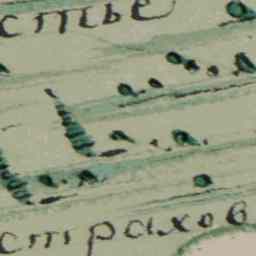 стье
страхов